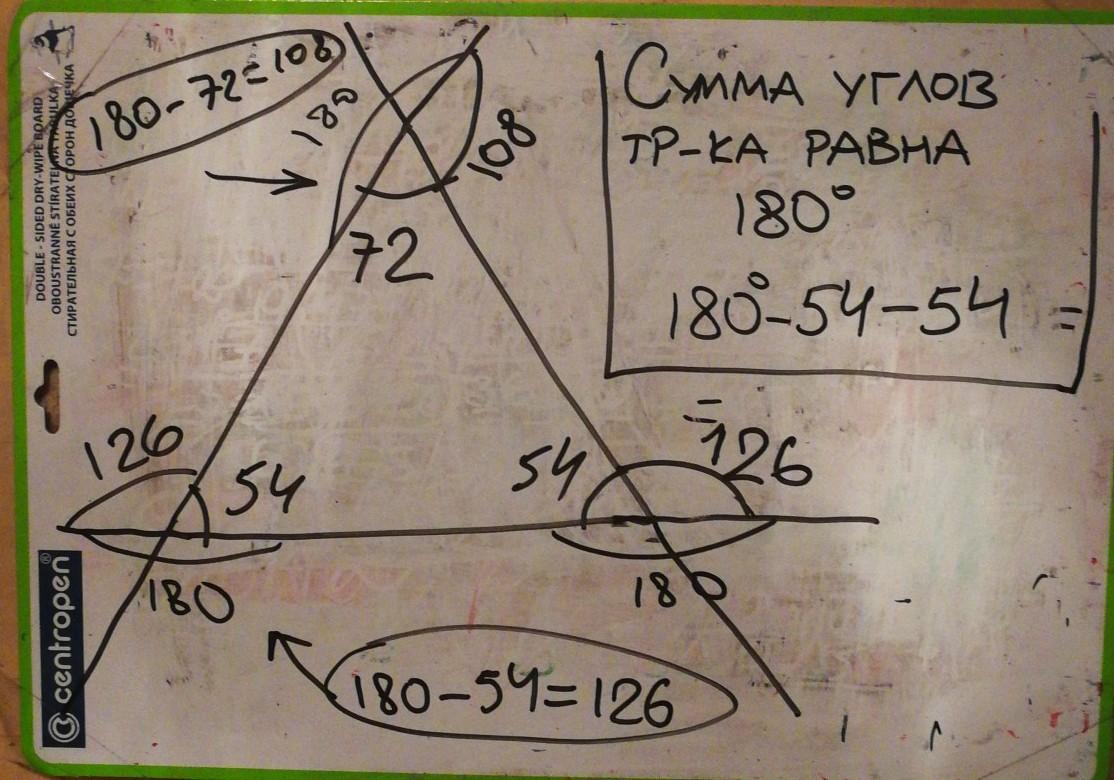 180-72=108
180
108
72
Сумма углов
тр-ка равна
180°
180°-54-54 =
126
54
54
=126
180
180
180-54=126
DOUBLE - SIDED DRY-WIPE BOARD
OBOUSTRANNĚ STÍRATELNÁ TABULKA
СТИРАТЕЛЬНАЯ С ОБЕИХ СТОРОН ДОЩЕЧКА
centropen®